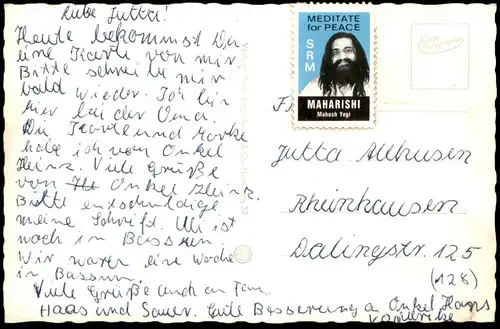 Liebe Jutta!
Heute bekommst Du
eine Karte von mir.
Bitte schreibe mir
bald wieder. Ich bin
hier bei der Oma.
Die Karte und Marke
habe ich von Onkel
Heinz. Viele Grüße
von Onkel Heinz.
Bitte entschuldige
meine Schrift. Uli ist
noch in Bassum
Wir waren eine Woche
in Bassum.
Viele Grüße auch an Fam.
Haas und Sauer. Gute Besserung a. Onkel Hans
MEDITATE
for PEACE
SRM
MAHARISHI
Mahesh Yogi
Jutta Allhusen
Rheinhausen
Dalingstr. 125
(128)